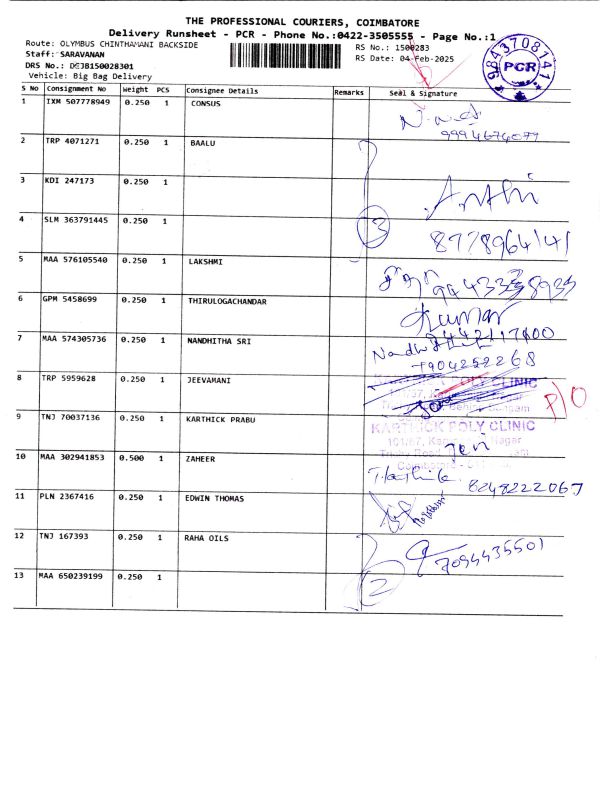 THE PROFESSIONAL COURIERS, COIMBATORE
Delivery Runsheet - PCR - Phone No.:0422-3505555 - Page No.:1
Route: OLYMBUS CHINTHAMANI BACKSIDE
RS No.: 1500283
Staff: SARAVANAN
RS Date: 04-Feb-2025
DRS No.: DCJB150028301
Vehicle: Big Bag Delivery
9843708141
PCR
S No Consignment No Weight PCS Consignee Details Remarks Seal & Signature
1 IXM 507778949 0.250 1 CONSUS
9994674077
2 TRP 4071271 0.250 1 BAALU
3 KDI 247173 0.250 1
Arthi
4 SLM 363791445 0.250 1
3
8778964141
5 MAA 576105540 0.250 1 LAKSHMI
6 GPM 5458699 0.250 1 THIRULOGACHANDAR
Kumar
7 MAA 574305736 0.250 1 NANDHITHA SRI
7904252268
8 TRP 5959628 0.250 1 JEEVAMANI
POLY CLINIC
P/O
9 TNJ 70037136 0.250 1 KARTHICK PRABU
KARTHICK POLY CLINIC
Jeri
10 MAA 302941853 0.500 1 ZAHEER
8248222067
11 PLN 2367416 0.250 1 EDWIN THOMAS
12 TNJ 167393 0.250 1 RAHA OILS
7094435501
13 MAA 650239199 0.250 1
2